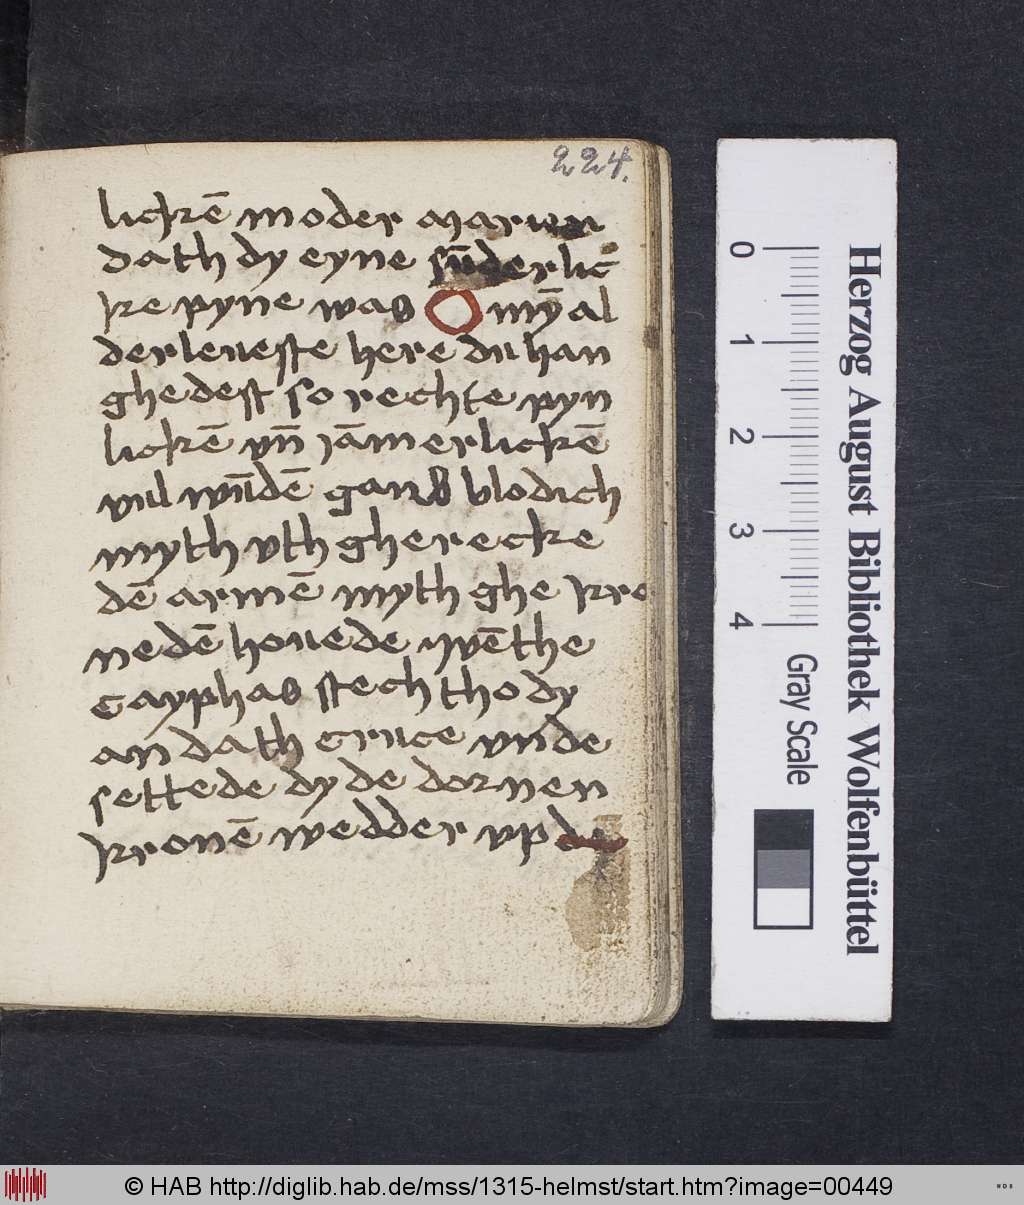 224.
lickē moder marien
dath dy eyne sūderlic̄
ke pyne was O mȳ al
derleueste here du han
ghedest so rechte pyn
lickē vn̄ iāmerlickē
vul wūdē gans blodich
myth vth gherecke
dē armē myth ghe kro
nedē houede wēthe
Cayphas stech tho dy
an dath cruce vnde
settede dy de dornen
kronē wedder vp de
Herzog August Bibliothek Wolfenbüttel
0 1 2 3 4
Gray Scale
© HAB http://diglib.hab.de/mss/1315-helmst/start.htm?image=00449